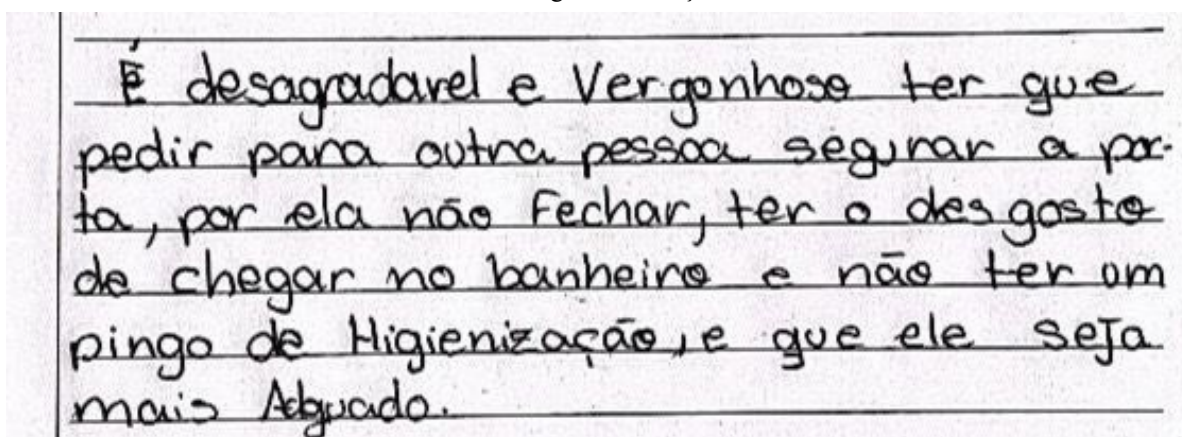 É desagradavel e Vergonhoso ter que
pedir para outra pessoa segurar a por-
ta, por ela não Fechar, ter o desgosto
de chegar no banheiro e não ter um
pingo de Higienização, e que ele seja
mais Adquado.